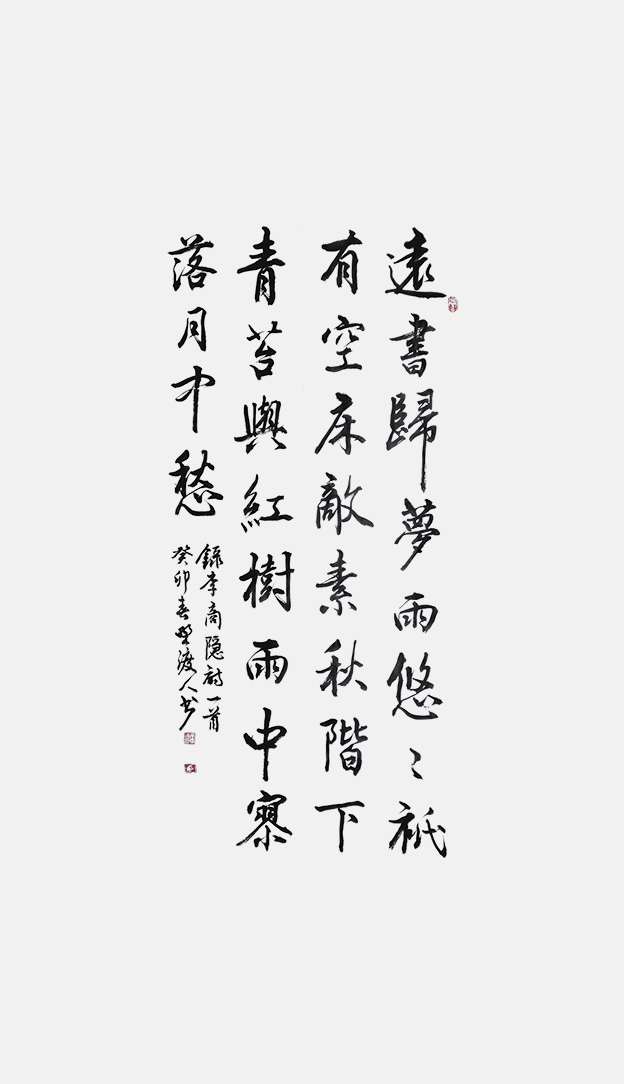 遠書歸夢兩悠〻祇
有空床敵素秋階下
青苔與紅樹雨中寥
落月中愁
錄李商隐詩一首
癸卯春野渡人书